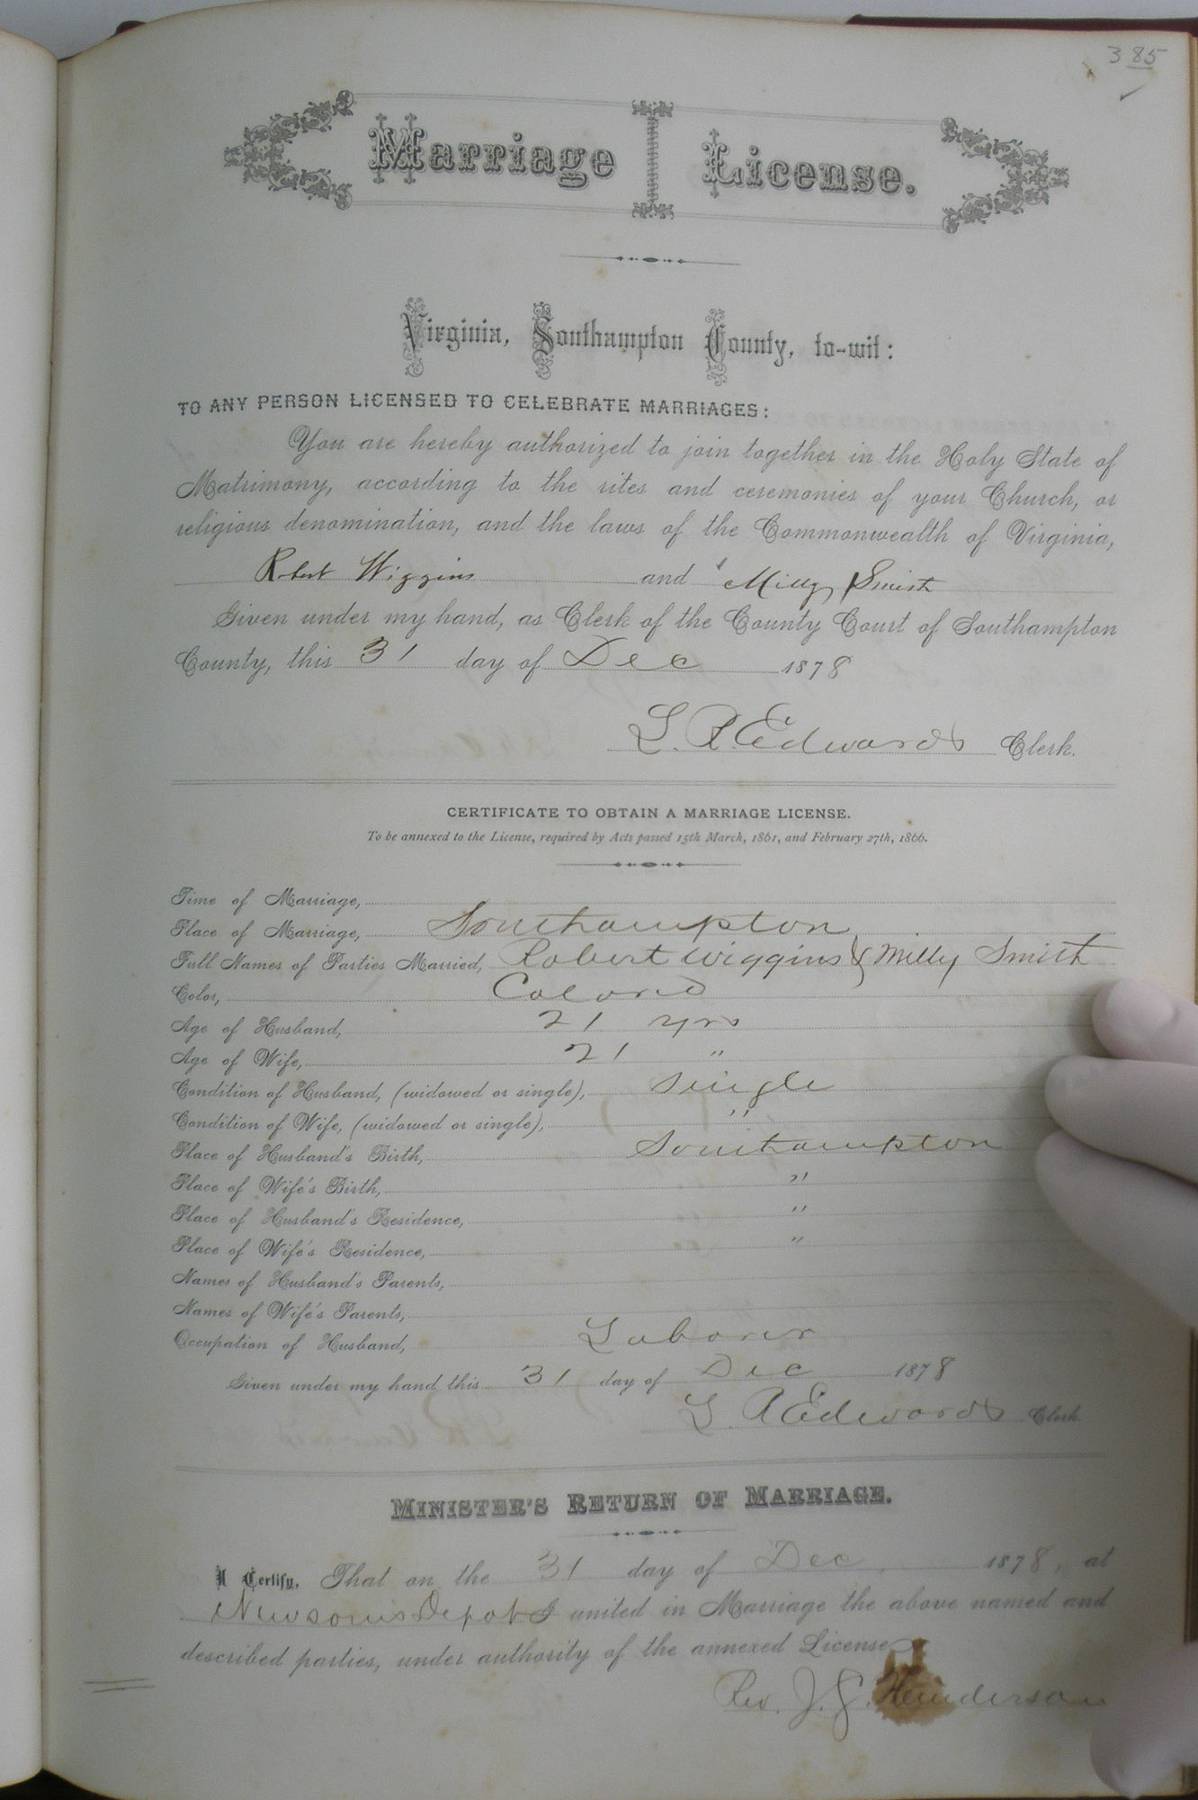 3 85
Marriage License.
Virginia, Southampton County, to-wit:
TO ANY PERSON LICENSED TO CELEBRATE MARRIAGES:
You are hereby authorized to join together in the Holy State of
Matrimony, according to the rites and ceremonies of your Church, or
religious denomination, and the laws of the Commonwealth of Virginia,
Robert Wiggins and Milly Smith
Given under my hand, as Clerk of the County Court of Southampton
County, this 31 day of Dec 1878
L. R. Edwards Clerk.
CERTIFICATE TO OBTAIN A MARRIAGE LICENSE.
To be annexed to the License, required by Acts passed 15th March, 1861, and February 27th, 1866.
Time of Marriage,
Place of Marriage, Southampton
Full Names of Parties Married, Robert Wiggins & Milly Smith
Color, Colored
Age of Husband, 21 yrs
Age of Wife, 21 "
Condition of Husband, (widowed or single), Single
Condition of Wife, (widowed or single), "
Place of Husband's Birth, Southampton
Place of Wife's Birth, "
Place of Husband's Residence, "
Place of Wife's Residence, "
Names of Husband's Parents,
Names of Wife's Parents,
Occupation of Husband, Laborer
Given under my hand this 31 day of Dec 1878
L R Edwards Clerk
MINISTER'S RETURN OF MARRIAGE.
I Certify, That on the 31 day of Dec 1878, at
Newsoms Depot I united in Marriage the above named and
described parties, under authority of the annexed License
Rev. J. G. Henderson